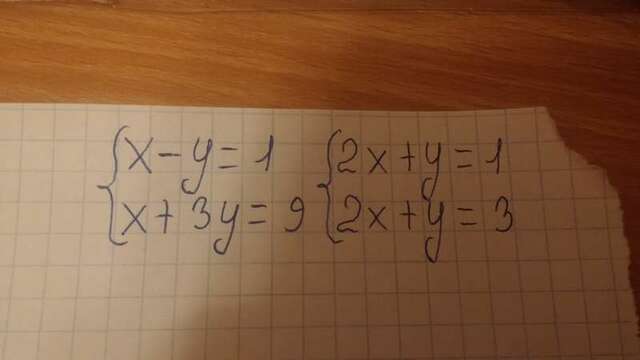 x - y = 1
x + 3y = 9
2x + y = 1
2x + y = 3